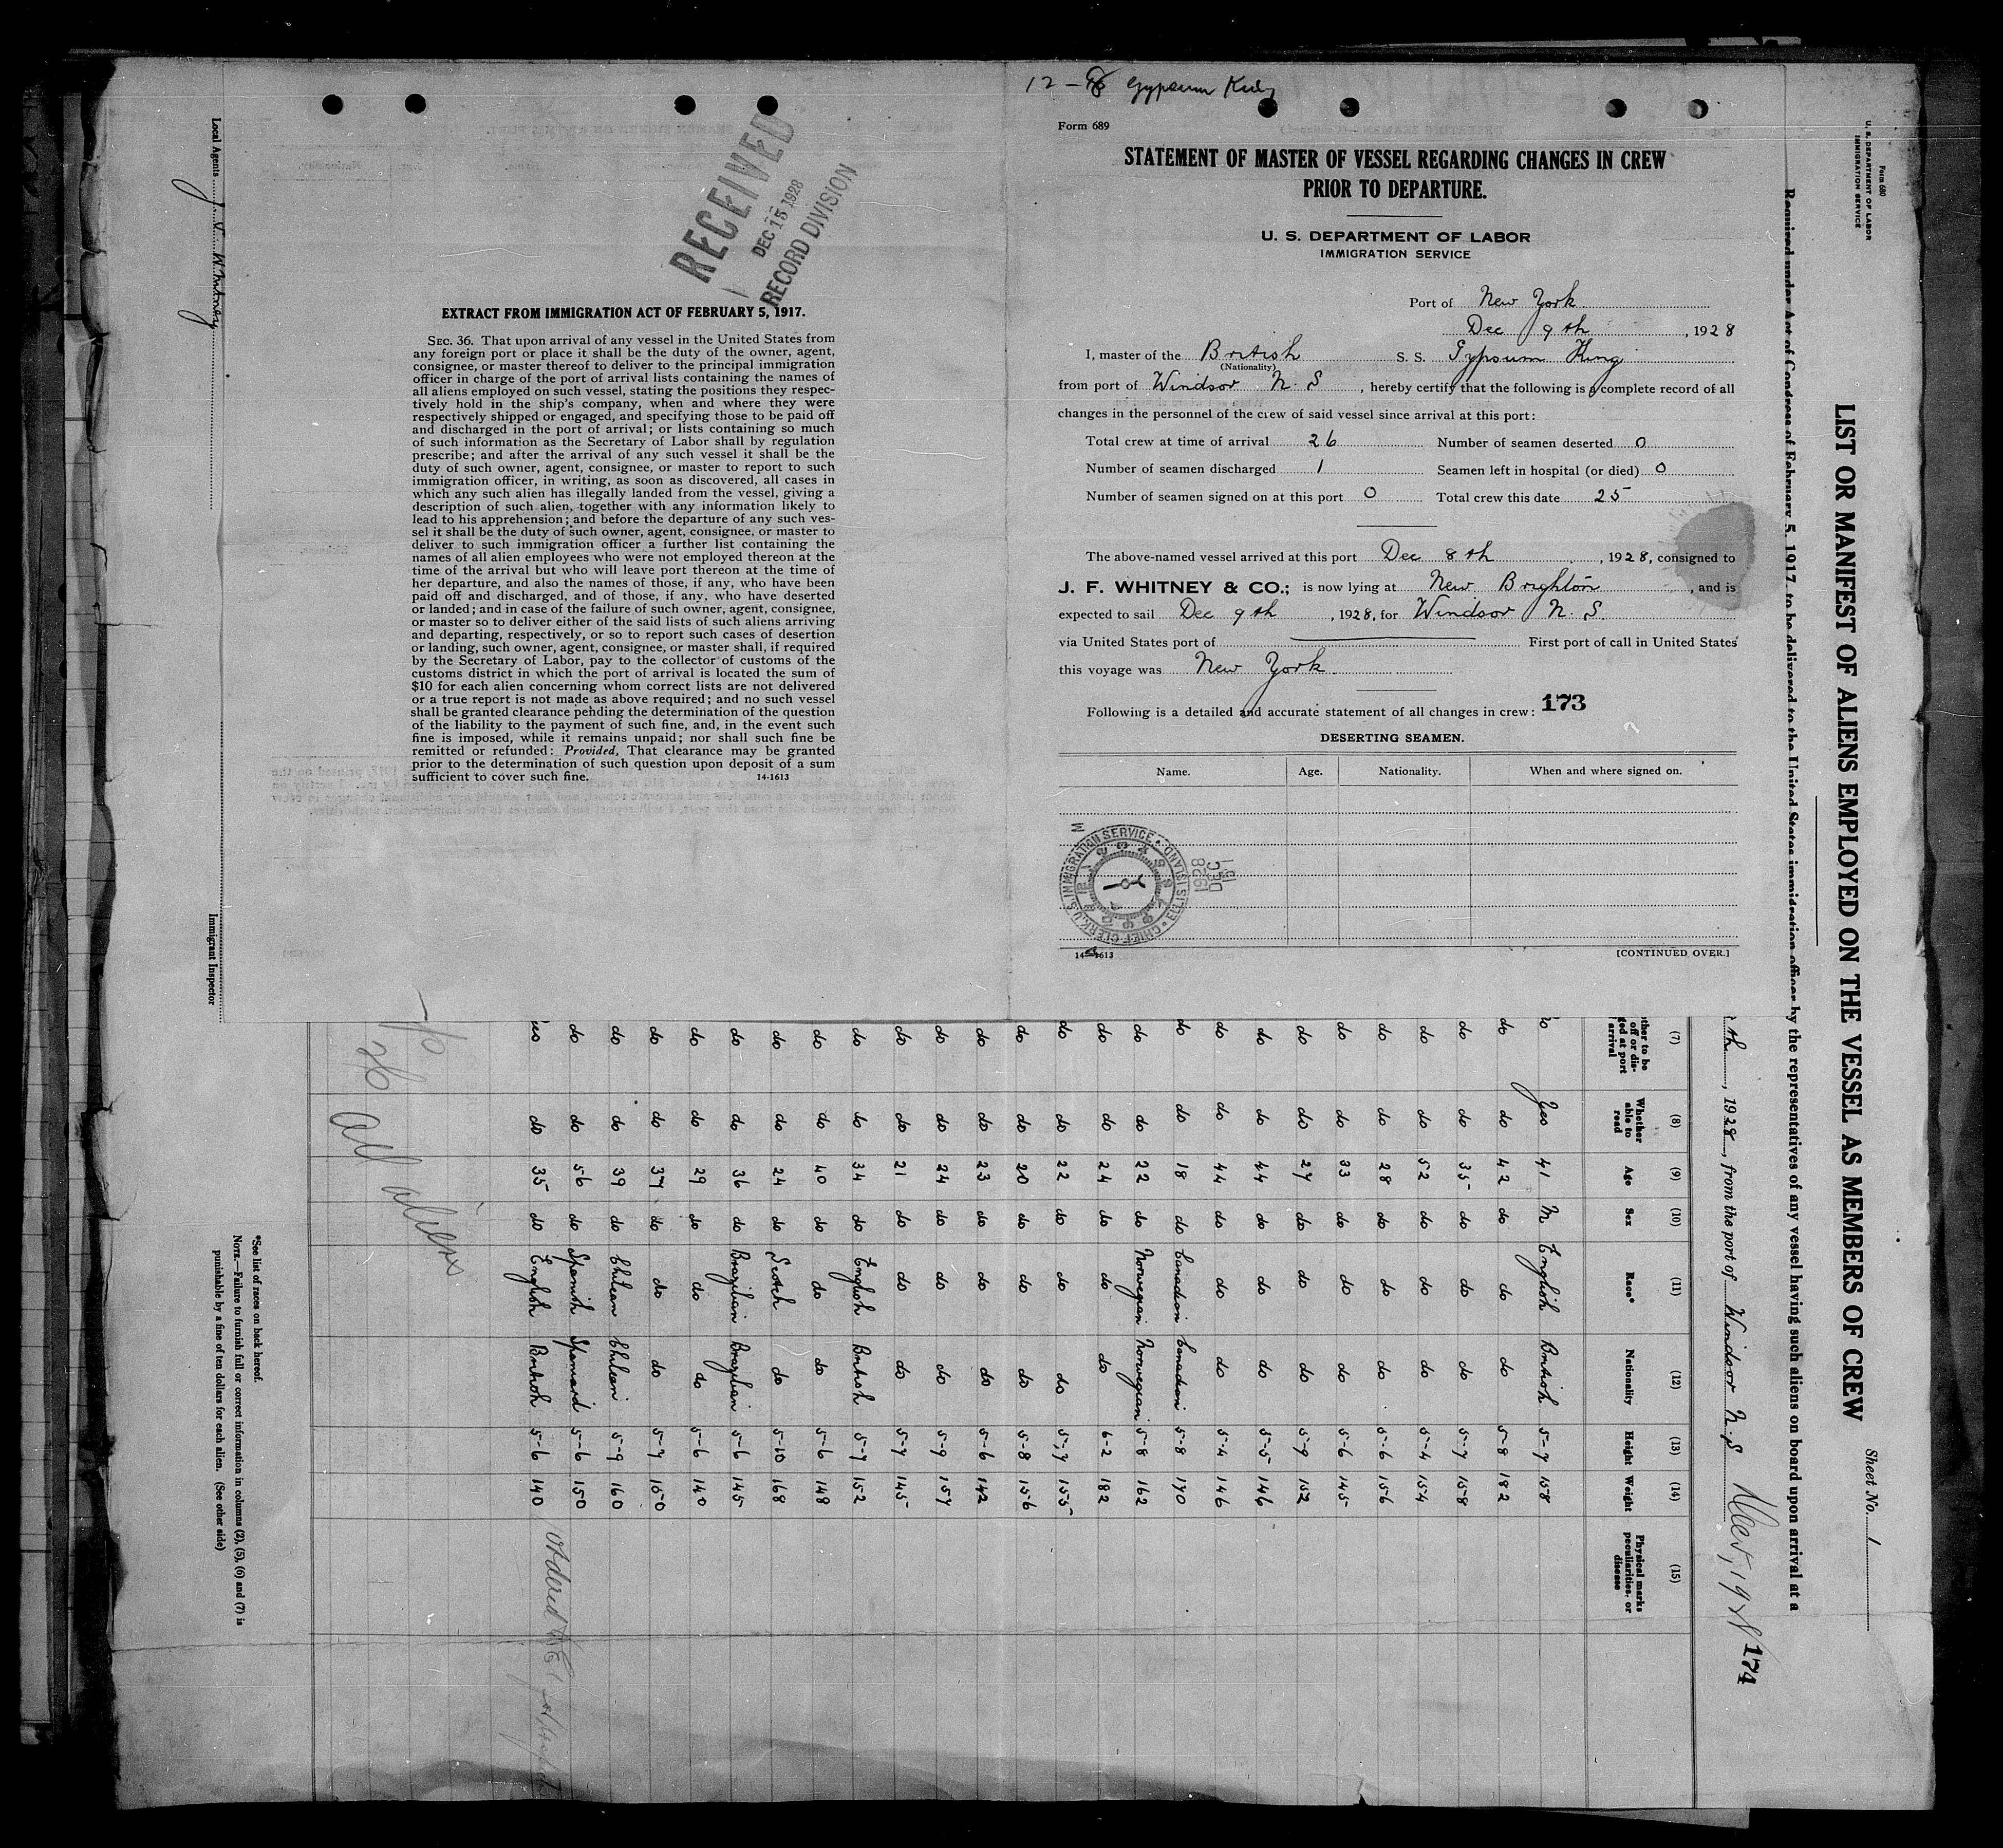 12 - 8 Gypsum King
Form 689
STATEMENT OF MASTER OF VESSEL REGARDING CHANGES IN CREW
PRIOR TO DEPARTURE.
U. S. DEPARTMENT OF LABOR
IMMIGRATION SERVICE
Port of New York
Dec 9th, 1928
I, master of the British S. S. Gypsum King
(Nationality)
from port of Windsor N. S, hereby certify that the following is a complete record of all
changes in the personnel of the crew of said vessel since arrival at this port:
Total crew at time of arrival 26 Number of seamen deserted 0
Number of seamen discharged 1 Seamen left in hospital (or died) 0
Number of seamen signed on at this port 0 Total crew this date 25
The above-named vessel arrived at this port Dec 8th, 1928, consigned to
J. F. WHITNEY & CO.; is now lying at New Brighton, and is
expected to sail Dec 9th, 1928, for Windsor N. S.
via United States port of First port of call in United States
this voyage was New York
Following is a detailed and accurate statement of all changes in crew: 173
DESERTING SEAMEN.
Name. Age. Nationality. When and where signed on.
CHIEF CLERK, U.S. IMMIGRATION SERVICE • ELLIS ISLAND •
DEC 15 1928
14-1613
[CONTINUED OVER.]
RECEIVED
DEC 15 1928
RECORD DIVISION
EXTRACT FROM IMMIGRATION ACT OF FEBRUARY 5, 1917.
SEC. 36. That upon arrival of any vessel in the United States from
any foreign port or place it shall be the duty of the owner, agent,
consignee, or master thereof to deliver to the principal immigration
officer in charge of the port of arrival lists containing the names of
all aliens employed on such vessel, stating the positions they respec-
tively hold in the ship's company, when and where they were
respectively shipped or engaged, and specifying those to be paid off
and discharged in the port of arrival; or lists containing so much
of such information as the Secretary of Labor shall by regulation
prescribe; and after the arrival of any such vessel it shall be the
duty of such owner, agent, consignee, or master to report to such
immigration officer, in writing, as soon as discovered, all cases in
which any such alien has illegally landed from the vessel, giving a
description of such alien, together with any information likely to
lead to his apprehension; and before the departure of any such ves-
sel it shall be the duty of such owner, agent, consignee, or master to
deliver to such immigration officer a further list containing the
names of all alien employees who were not employed thereon at the
time of the arrival but who will leave port thereon at the time of
her departure, and also the names of those, if any, who have been
paid off and discharged, and of those, if any, who have deserted
or landed; and in case of the failure of such owner, agent, consignee,
or master so to deliver either of the said lists of such aliens arriving
and departing, respectively, or so to report such cases of desertion
or landing, such owner, agent, consignee, or master shall, if required
by the Secretary of Labor, pay to the collector of customs of the
customs district in which the port of arrival is located the sum of
$10 for each alien concerning whom correct lists are not delivered
or a true report is not made as above required; and no such vessel
shall be granted clearance pending the determination of the question
of the liability to the payment of such fine, and, in the event such
fine is imposed, while it remains unpaid; nor shall such fine be
remitted or refunded: Provided, That clearance may be granted
prior to the determination of such question upon deposit of a sum
sufficient to cover such fine. 14-1613
Form 680
U. S. DEPARTMENT OF LABOR
IMMIGRATION SERVICE
Sheet No. 1
LIST OR MANIFEST OF ALIENS EMPLOYED ON THE VESSEL AS MEMBERS OF CREW
Required under Act of Congress of February 5, 1917, to be delivered to the United States immigration officer by the representatives of any vessel having such aliens on board upon arrival at a
th, 1928, from the port of Windsor N. S 174
(7) (8) (9) (10) (11) (12) (13) (14) (15)
Whether able to read Age Sex Race* Nationality Height Weight Physical marks, peculiarities, or disease
Yes 41 M English British 5-7 158
do do 42 do do do 5-8 182
do do 35 do do do 5-7 158
do do 52 do do do 5-4 154
do do 28 do do do 5-6 156
do do 33 do do do 5-6 145
do do 27 do do do 5-9 152
do do 44 do do do 5-5 146
do do 44 do do do 5-4 146
do do 18 do Canadian Canadian 5-8 170
do do 22 do Norwegian Norwegian 5-8 162
do do 24 do do do 6-2 182
do do 22 do do do 5-7 155
do do 20 do do do 5-8 156
do do 23 do do do 5-6 142
do do 24 do do do 5-9 157
do do 21 do do do 5-7 145
do do 34 do English British 5-7 152
do do 40 do do do 5-6 148
do do 24 do Scotch do 5-10 168
do do 36 do Brazilian Brazilian 5-6 145
do do 29 do do do 5-6 140
do do 37 do do do 5-7 150
do do 39 do Chilean Chilean 5-9 160
do do 56 do Spanish Spaniard 5-6 150
do 35 do English British 5-6 140
26 All aliens
*See list of races on back hereof.
NOTE.—Failure to furnish full or correct information in columns (2), (5), (6) and (7) is
punishable by a fine of ten dollars for each alien. (See other side)
Local Agents J. F. Whitney
Immigrant Inspector